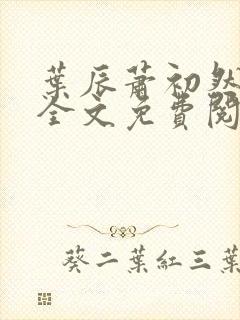 葉辰蕭初然
全文免費閱
葵二葉紅三葉